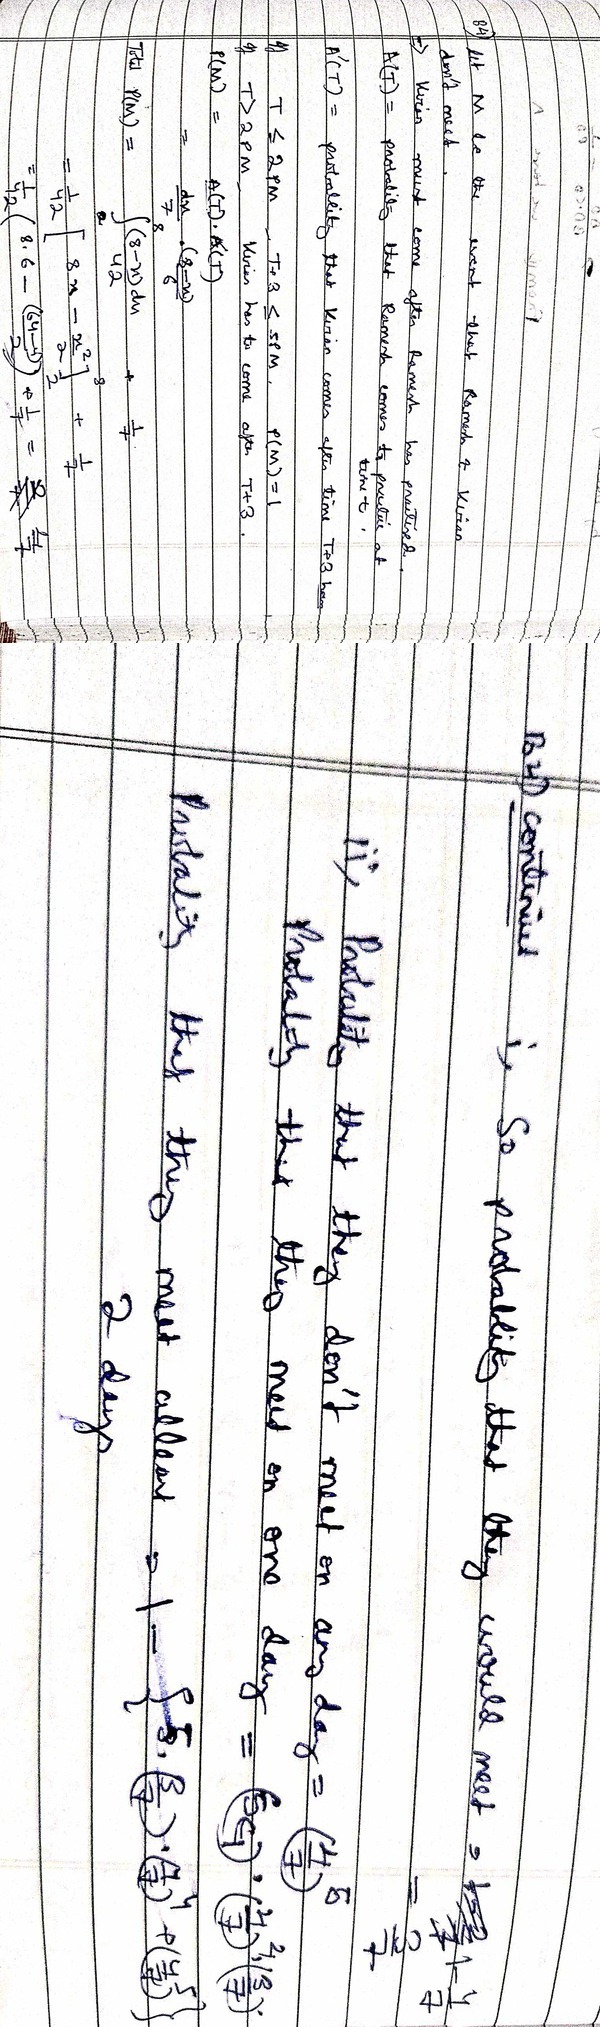 B4) let M be the event that Ramesh & Kiran
don't meet.
=> Kiran must come after Ramesh has practised.
A(T) = probability that Ramesh comes to practise at
time t.
A'(T) = probability that Kiran comes after time T+3 hrs
if T ≤ 2 PM, T+3 ≤ 5PM. P(M) = 1
if T > 2 PM, Kiran has to come after T+3.
P(M) = A(T). A'(T)
= dx/7 . (8-x)/6
Total P(M) = ∫ (8-x)dx/42 + 1/7
= 1/42 [8x - x²/2] 8 2 + 1/7
= 1/42 (8.6 - (64-4)/2) + 1/7 = 4/7
B4) continued i, So probability that they would meet = 1 - 4/7
= 3/7
ii, Probability that they don't meet on any day = (4/7)^5
Probability that they meet on one day = (5C1).(4/7)^4.(3/7).
Probability that they meet atleast = 1 - {5.(3/7).(4/7)^4 + (4/7)^5}
2 days